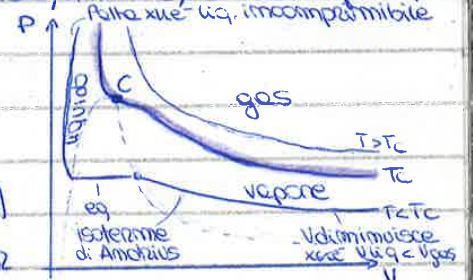 P
Salta xué liq. imcomprimibile
liquido
C
gas
T>Tc
Tc
vapore
T<Tc
eq
isoterme
di Amdrius
V diminuisce
xué Vliq < Vgas
V